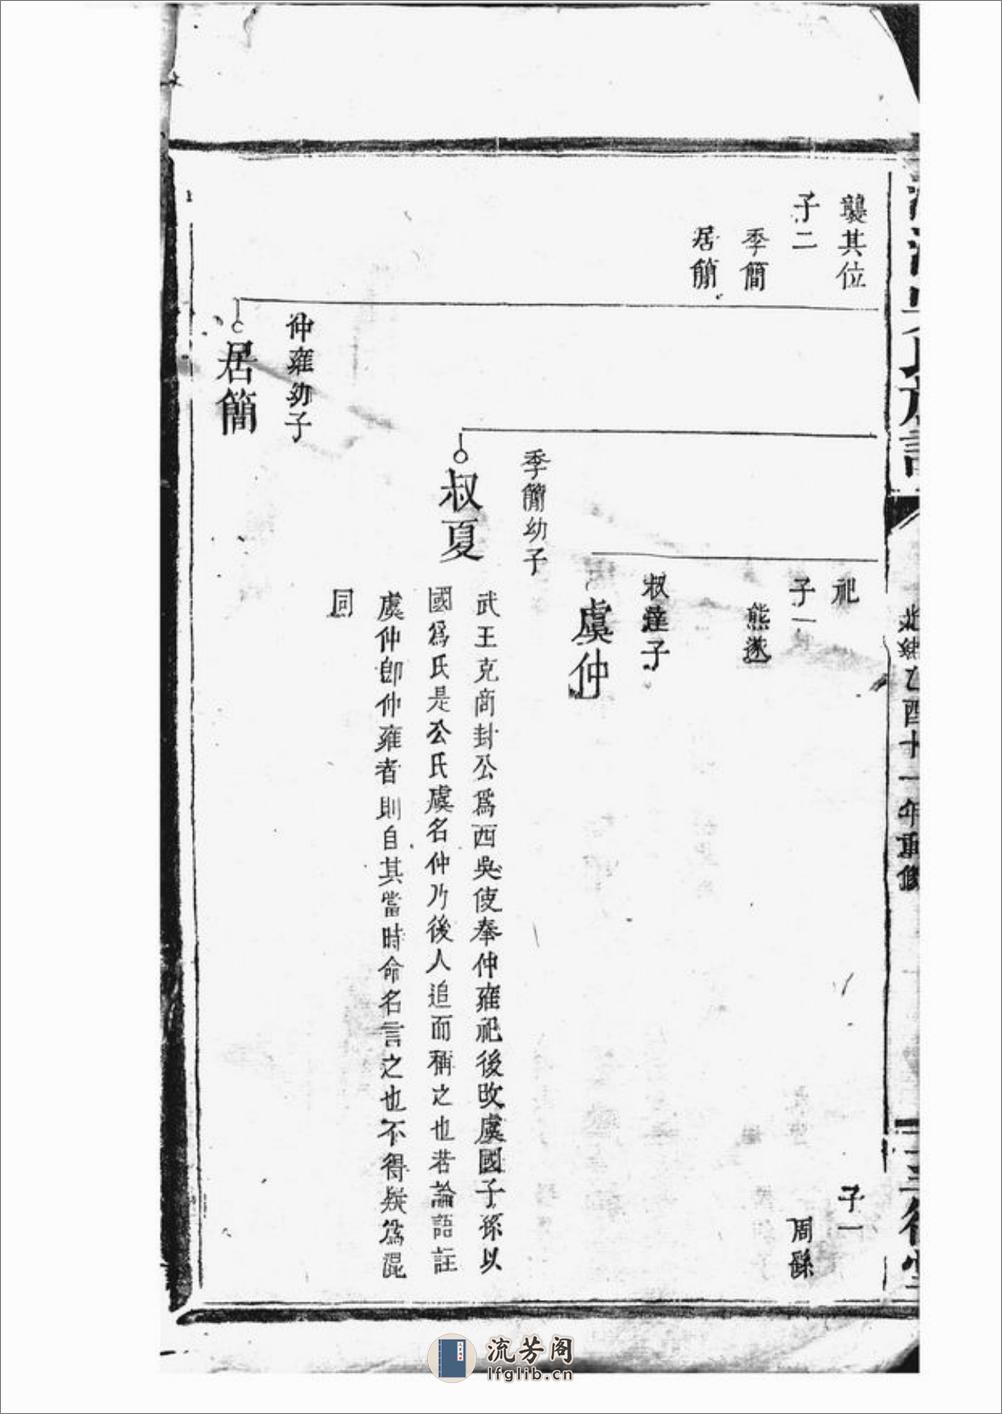 襲其位
子二
季簡
居簡
仲雍幼子
居簡
季簡幼子
叔夏
祀
子一
熊遂
叔達子
虞仲
武王克商封公爲西吳使奉仲雍祀後改虞國子孫以
國爲氏是公氏虞名仲乃後人追而稱之也若論語註
虞仲卽仲雍者則自其當時命名言之也不得疑爲混
同
子一
周繇
乙酉十一年重修
流芳阁
lfglib.cn